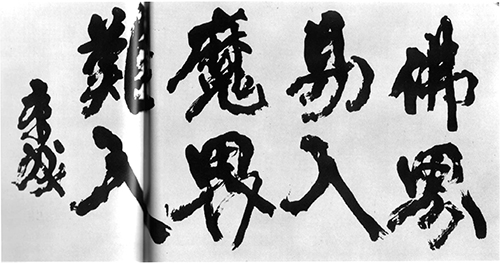 佛界
易入
魔界
難入
康成